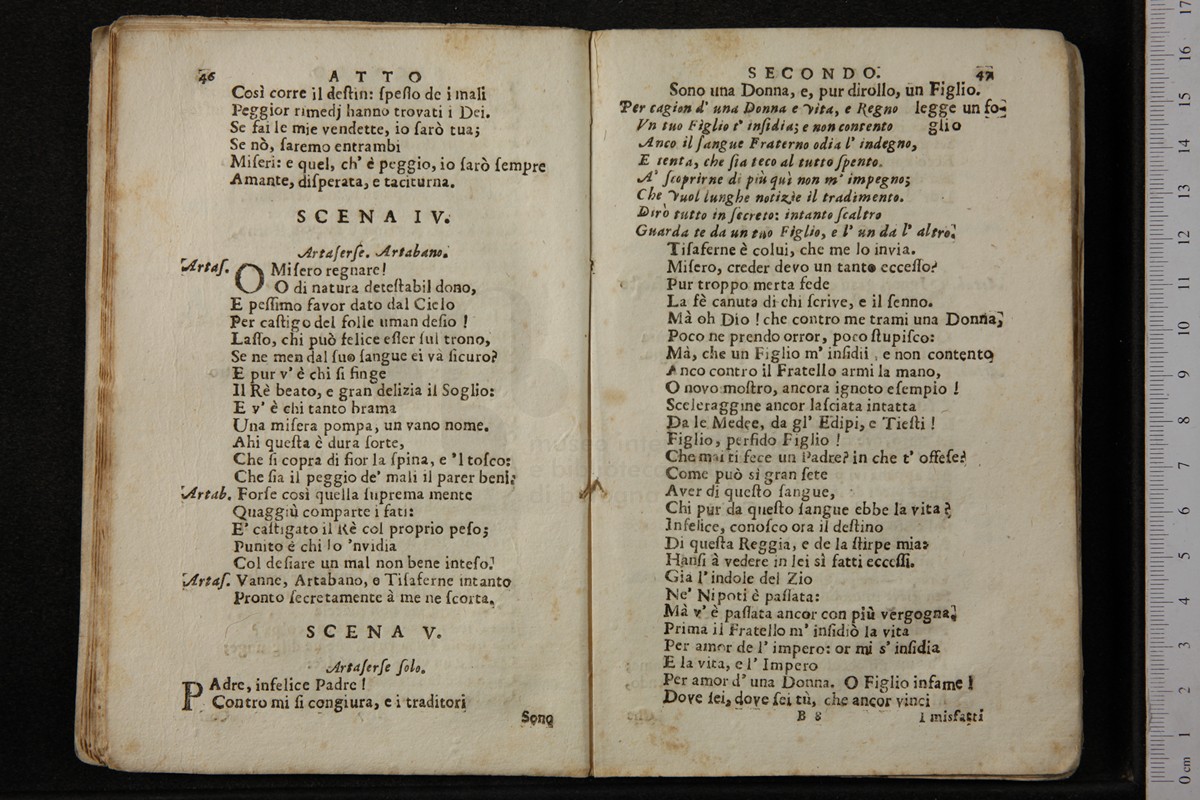 46 ATTO
Così corre il destin: speſſo de i mali
Peggior rimedj hanno trovati i Dei.
Se fai le mie vendette, io ſarò tua;
Se nò, ſaremo entrambi
Miſeri: e quel, ch' è peggio, io ſarò ſempre
Amante, diſperata, e taciturna.
SCENA IV.
Artaſerſe. Artabano.
Artaſ. O Miſero regnare!
O di natura deteſtabil dono,
E peſſimo favor dato dal Cielo
Per caſtigo del folle uman deſio !
Laſſo, chi può felice eſſer ſul trono,
Se ne men dal ſuo ſangue ei và ſicuro?
E pur v' è chi ſi finge
Il Rè beato, e gran delizia il Soglio:
E v' è chi tanto brama
Una miſera pompa, un vano nome.
Ahi queſta è dura ſorte,
Che ſi copra di fior la ſpina, e 'l toſco:
Che ſia il peggio de' mali il parer beni.
Artab. Forſe così quella ſuprema mente
Quaggiù comparte i fati:
E' caſtigato il Rè col proprio peſo;
Punito è chi lo 'nvidia
Col deſiare un mal non bene inteſo.
Artaſ. Vanne, Artabano, e Tiſaferne intanto
Pronto ſecretamente à me ne ſcorta.
SCENA V.
Artaſerſe ſolo.
PAdre, infelice Padre !
Contro mi ſi congiura, e i traditori
Sono
SECONDO. 47
Sono una Donna, e, pur dirollo, un Figlio.
Per cagion d' una Donna e Vita, e Regno legge un fo-
Vn tuo Figlio t' inſidia; e non contento glio
Anco il ſangue Fraterno odia l' indegno,
E tenta, che ſia teco al tutto ſpento.
A' ſcoprirne di più quì non m' impegno;
Che Vuol lunghe notizie il tradimento.
Dirò tutto in ſecreto: intanto ſcaltro
Guarda te da un tuo Figlio, e l' un da l' altro.
Tiſaferne è colui, che me lo invia.
Miſero, creder devo un tanto ecceſſo?
Pur troppo merta fede
La fè canuta di chi ſcrive, e il ſenno.
Mà oh Dio ! che contro me trami una Donna,
Poco ne prendo orror, poco ſtupiſco:
Mà, che un Figlio m' inſidii, e non contento
Anco contro il Fratello armi la mano,
O novo moſtro, ancora ignoto eſempio !
Sceleraggine ancor laſciata intatta
Da le Medee, da gl' Edipi, e Tieſti !
Figlio, perfido Figlio !
Che mai ti fece un Padre? in che t' offeſe?
Come può sì gran ſete
Aver di queſto ſangue,
Chi pur da queſto ſangue ebbe la vita?
Infelice, conoſco ora il deſtino
Di queſta Reggia, e de la ſtirpe mia:
Hanſi à vedere in lei sì fatti ecceſſi.
Gia l' indole del Zio
Ne' Nipoti è paſſata:
Mà v' è paſſata ancor con più vergogna.
Prima il Fratello m' inſidiò la vita
Per amor de l' impero: or mi s' inſidia
E la vita, e l' Impero
Per amor d' una Donna. O Figlio infame !
Dove ſei, dove ſei tù, che ancor vinci
B 8 I misfatti